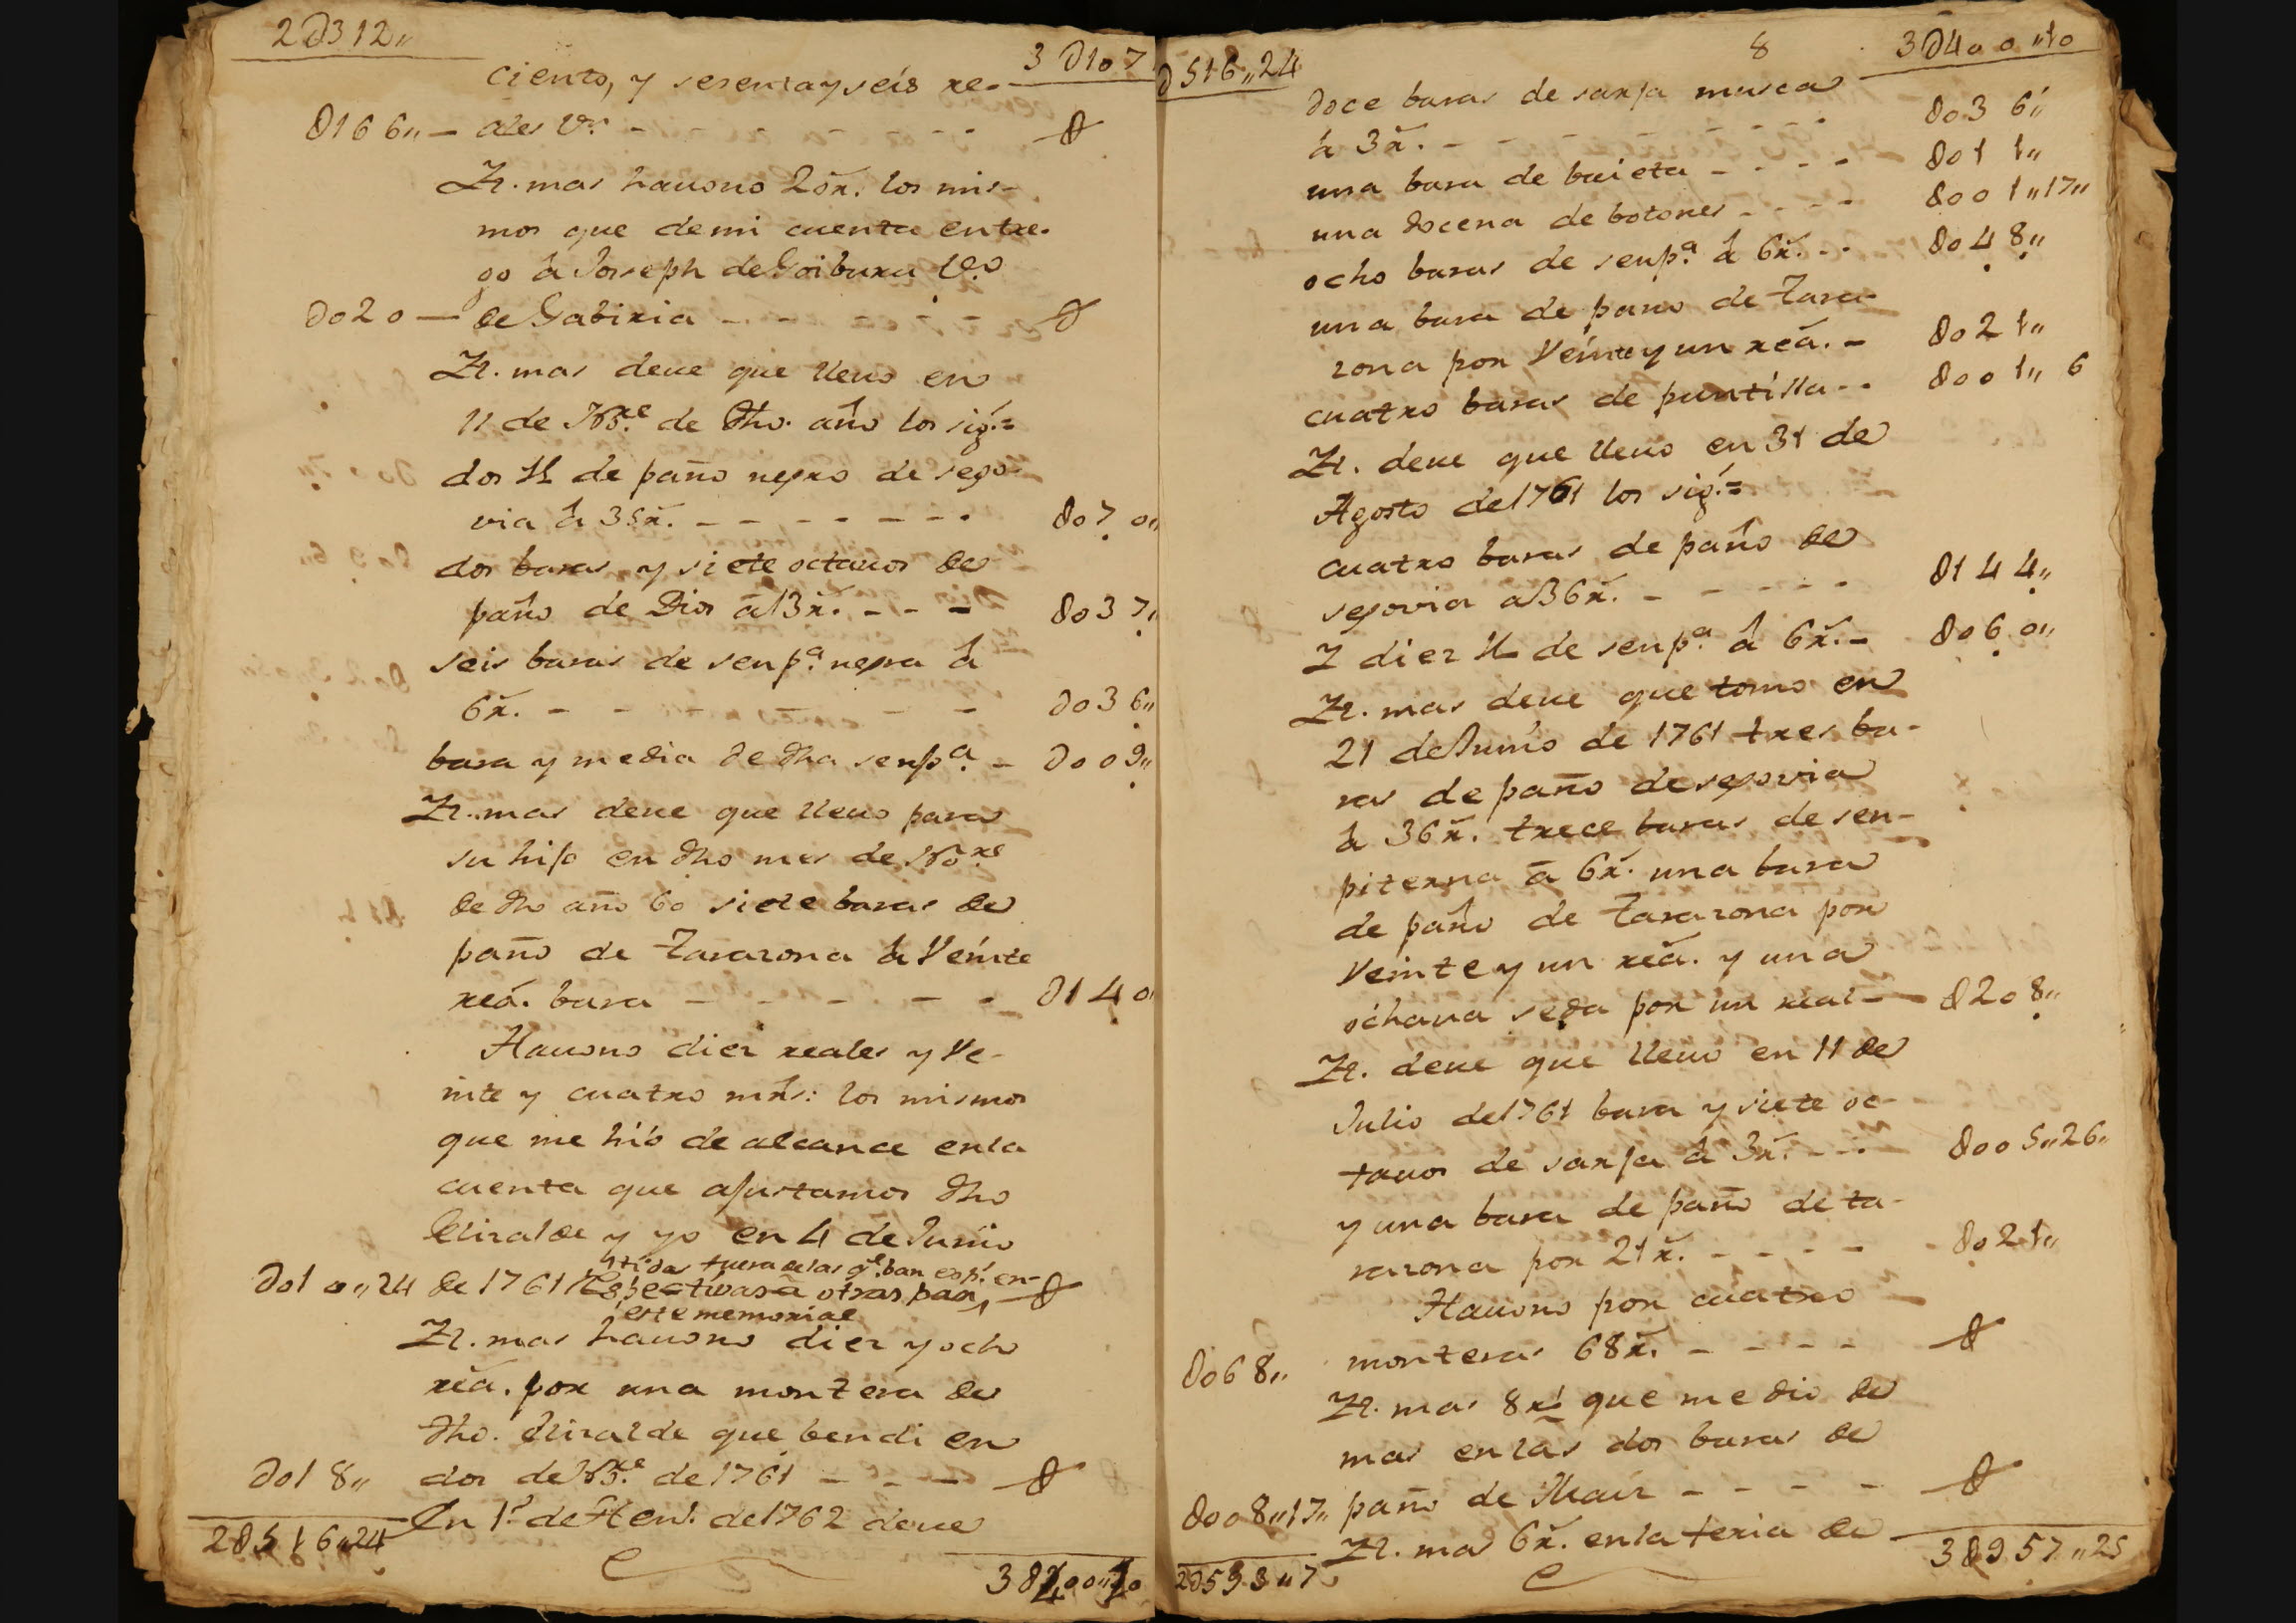 2ϑ312,,
3ϑ107
ciento, y sesenta y seis re-
ϑ166,, — ales Vn. - - - - - - ϑ
Yt. mas hauono 20 rs. los mis-
mos que de mi cuenta entre-
go à Joseph de Goiburu Vo.
ϑ020 — de Gabiria - - - - - - ϑ
Yt. mas deue que lleuo en
11 de Nbre. de dho. año los sig.=
dos Vs de paño negro de sego-
via à 35 rs. - - - - - - - - ϑ070,,
dos baras y siete octauos de
paño de Dios à 13 rs. - - - ϑ037,,
seis baras de senpa. negra à
6 rs. - - - - - - - ϑ036,,
bara y media de dha senpa. - ϑ009,,
Yt. mas deue que lleuo para
su hijo en dho mes de Nobre
de dho año 60 siete baras de
paño de Tarazona à Veinte
reá. bara - - - - - - ϑ140
Hauono diez reales y Ve-
inte y cuatro mrs: los mismos
que me hiso de alcance en la
cuenta que ajustamos dho
Elizalde y yo en 4 de Junio
tidas fuera de las qe. ban esp. en-
ϑ010,,24 de 1761 respectivas à otras par- ϑ
este memorial
Yt. mas hauono diez y ocho
reá. por una montera de
dho. Elizalde que bendi en
ϑ018,, dos de Nbre. de 1761 - - - ϑ
En 1o. de Hen. de 1762 deue
2ϑ516,,24
3ϑ400,,10
ϑ516,,24
8
3ϑ400,,10
doce baras de sarja musca
à 3 rs. - - - - - - - - ϑ036,,
una bara de baieta - - - - ϑ011,,
una docena de botones - - - - ϑ001,,17,,
ocho baras de senpa. à 6 rs. - - ϑ048,,
una bara de pano de Tara-
zona por Veinte y un reá. - ϑ021,,
cuatro baras de puntilla - - ϑ001,,6
Yt. deue que lleuo en 31 de
Agosto de 1761 los sig.=
cuatro baras de paño de
segovia à 36 rs. - - - - - ϑ144,,
Y diez Vs de senpa. à 6 rs. - ϑ060,,
Yt. mas deue que tomo en
21 de Junio de 1761 tres ba-
ras de paño de segovia
à 36 rs. trece baras de sen-
piterna à 6 rs. una bara
de paño de Tarazona por
Veinte y un reá. y una
ochaua seda por un real - ϑ208,,
Yt. deue que lleuo en 11 de
Julio de 1761 bara y siete oc-
tauos de sarja à 3 rs. - - - ϑ005,,26,,
y una bara de paño de ta-
razona por 21 rs. - - - - - ϑ021,,
Hauono por cuatro
ϑ068,, monteras 68 rs. - - - - ϑ
Yt. mas 8 rs. que me dio de
mas en las dos baras de
ϑ008,,17,, paño de Mair - - - - ϑ
Yt. mas 6 rs. en la feria de
2ϑ593,,7
3ϑ957,,25